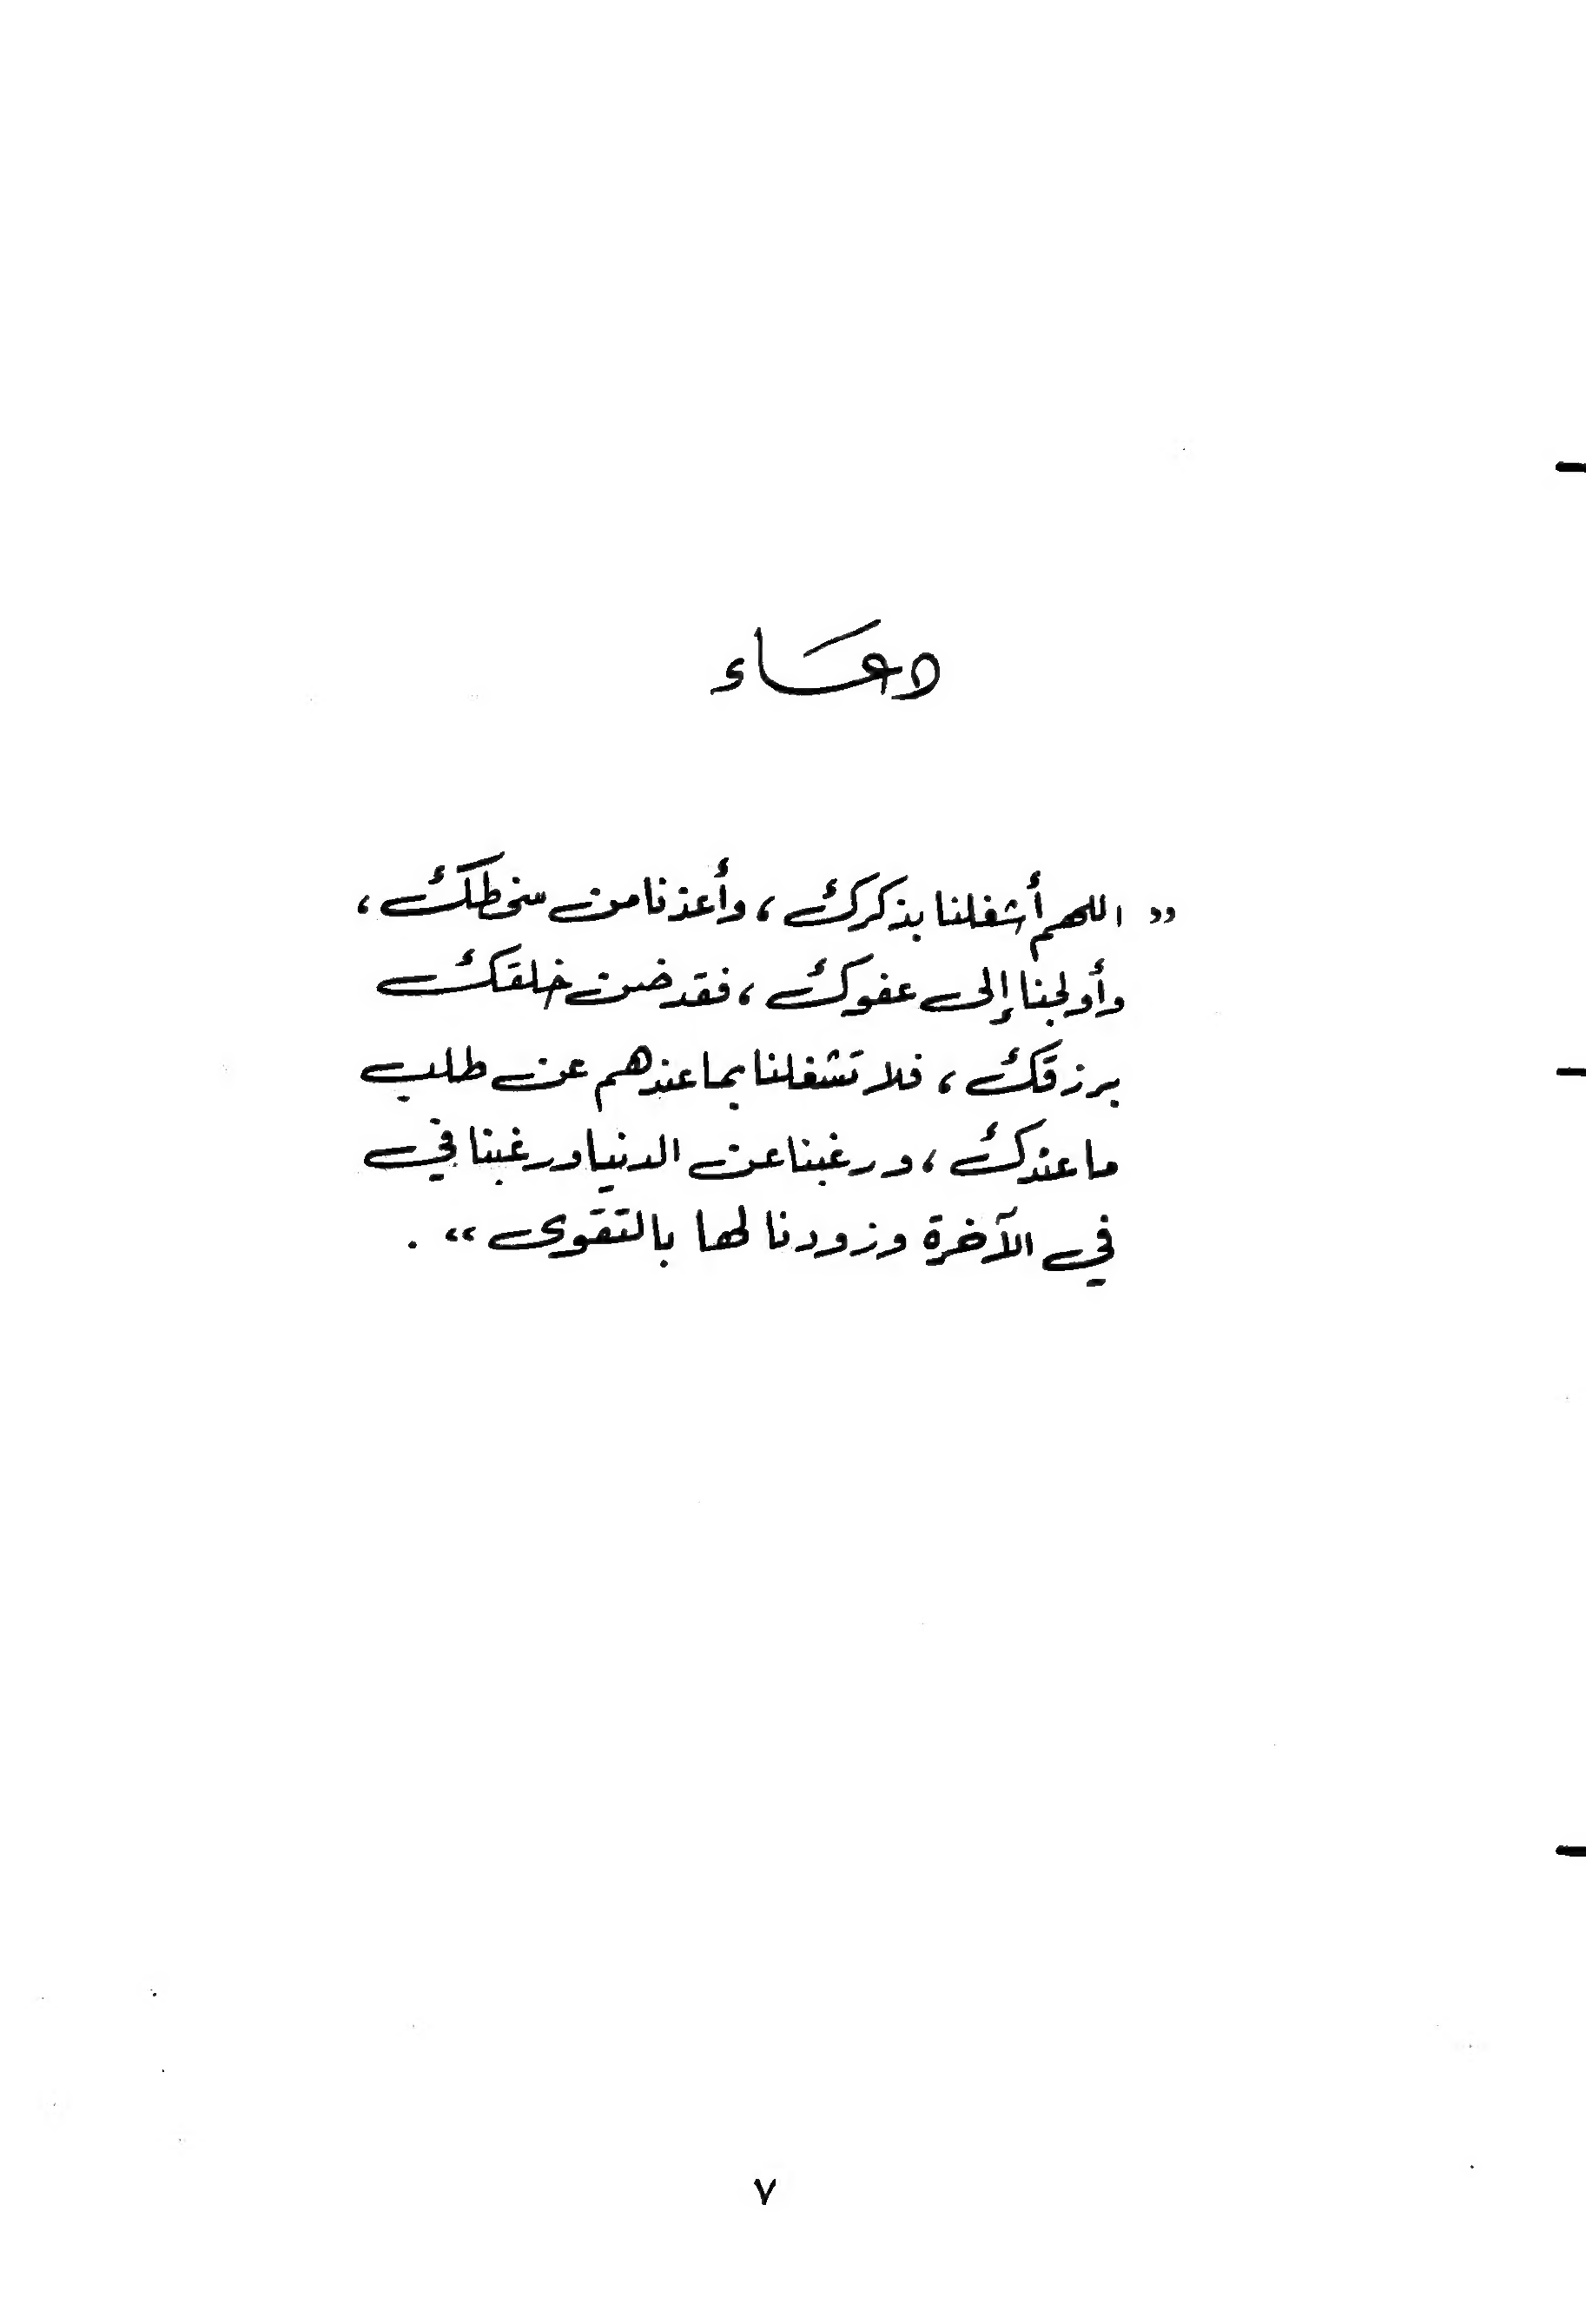 دعاء
« اللهم أشغلنا بذكرك ، وأعذنا من سخطك ،
وأولجنا إلى عفوك ، فقد ضن خلقك
برزقك ، فلا تشغلنا بما عندهم عن طلب
ما عندك ، ورغبنا عن الدنيا ورغبنا في
في الآخرة وزودنا لها بالتقوى » .
٧